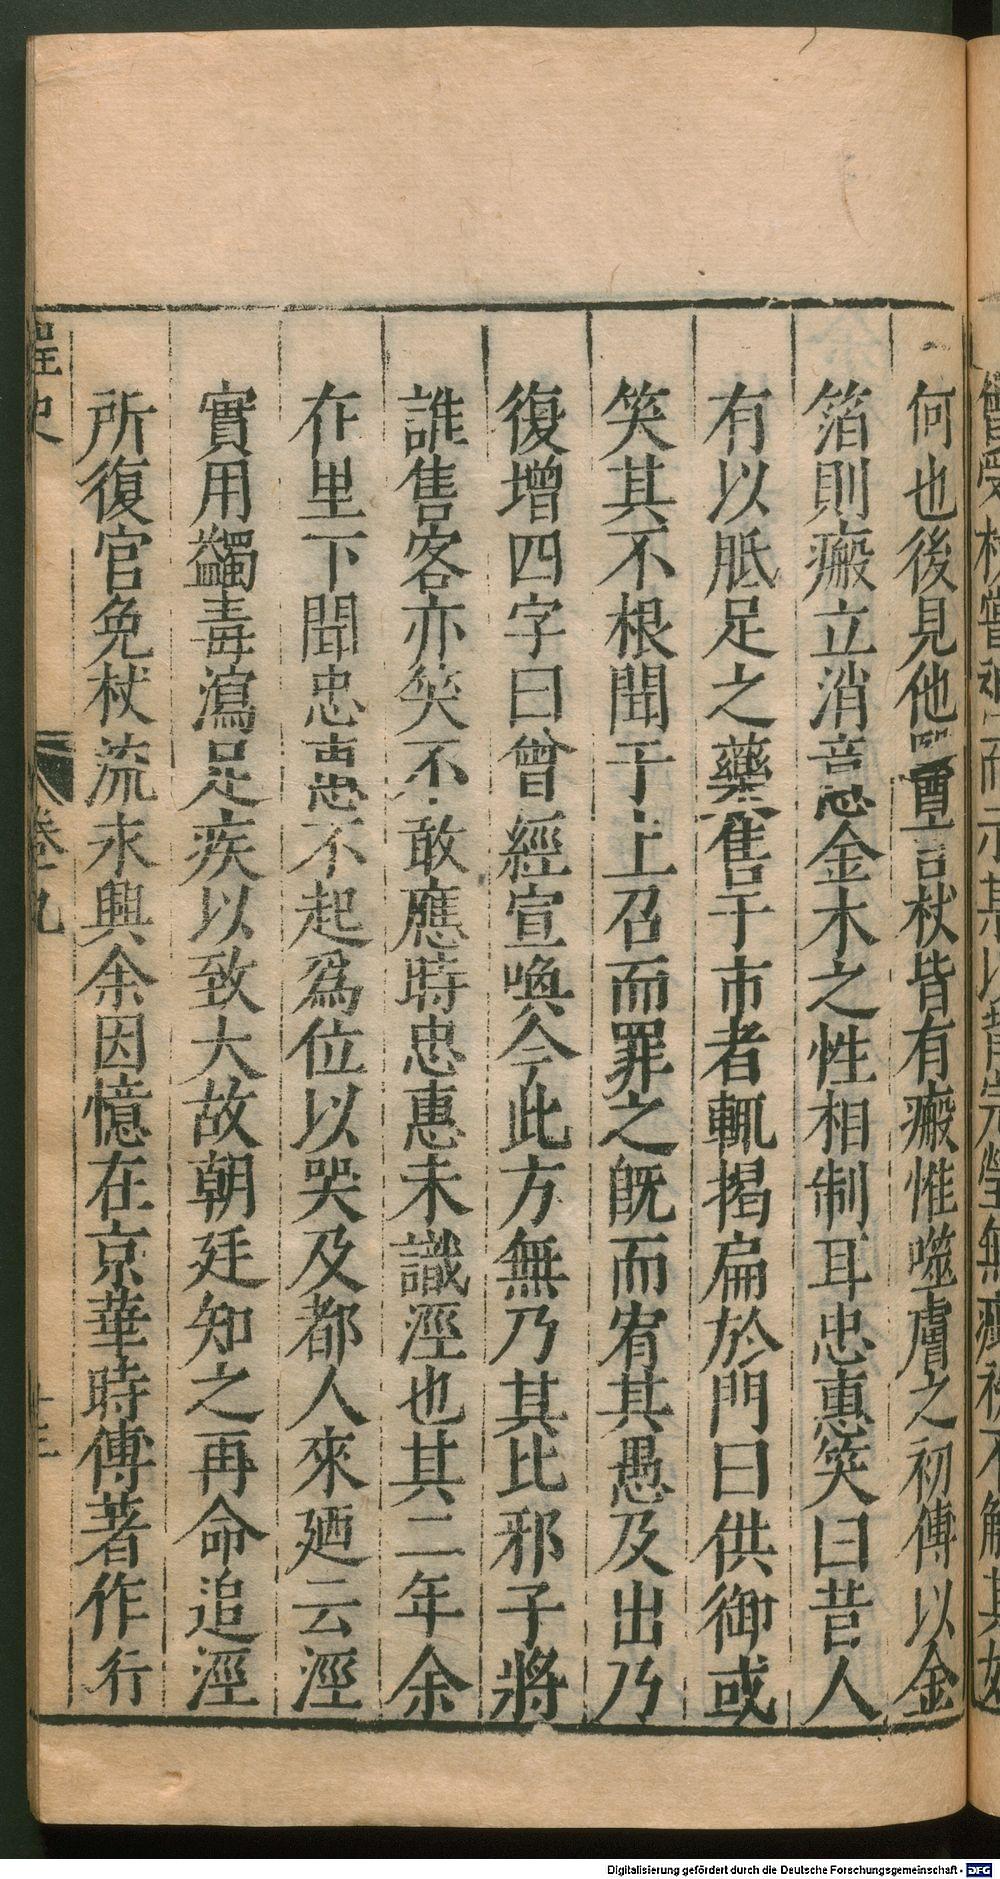 何也後見他醫言杖皆有瘢惟噬膚之初傅以金
箔則瘢立消意金木之性相制耳忠惠笑曰昔人
有以胝足之藥售于市者輒揭扁於門曰供御或
笑其不根聞于上召而罪之旣而宥其愚及出乃
復增四字曰曾經宣喚今此方無乃其比邪子將
誰售客亦笑不敢應時忠惠未識涇也其二年余
在里下聞忠惠不起爲位以哭及都人來廼云涇
實用蠲毒瀉足疾以致大故朝廷知之再命追涇
所復官免杖流永興余因憶在京華時傳著作行
桯史
卷九
十三
Digitalisierung gefördert durch die Deutsche Forschungsgemeinschaft - DFG